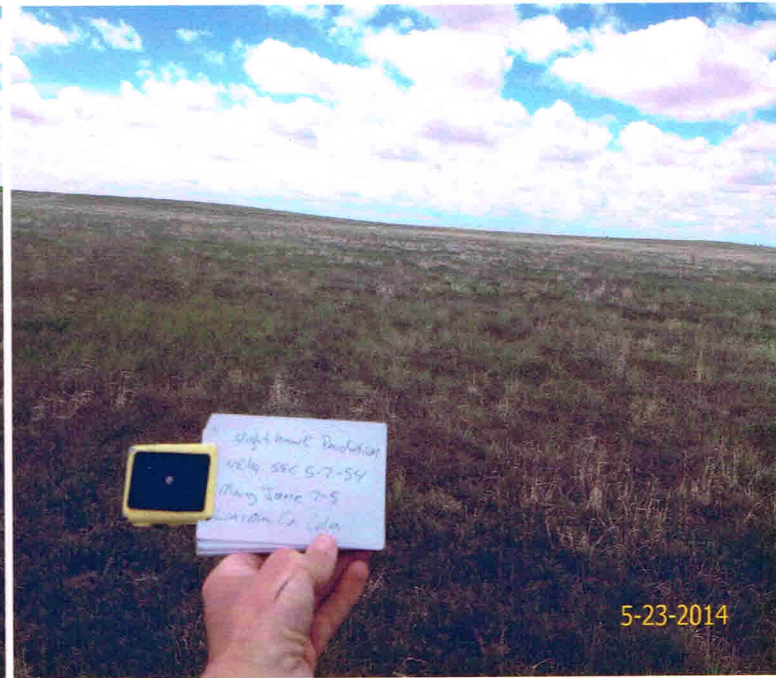 Nighthawk Production
sec 5-7-54
Mary Jane 7-5
Lincoln Co
5-23-2014